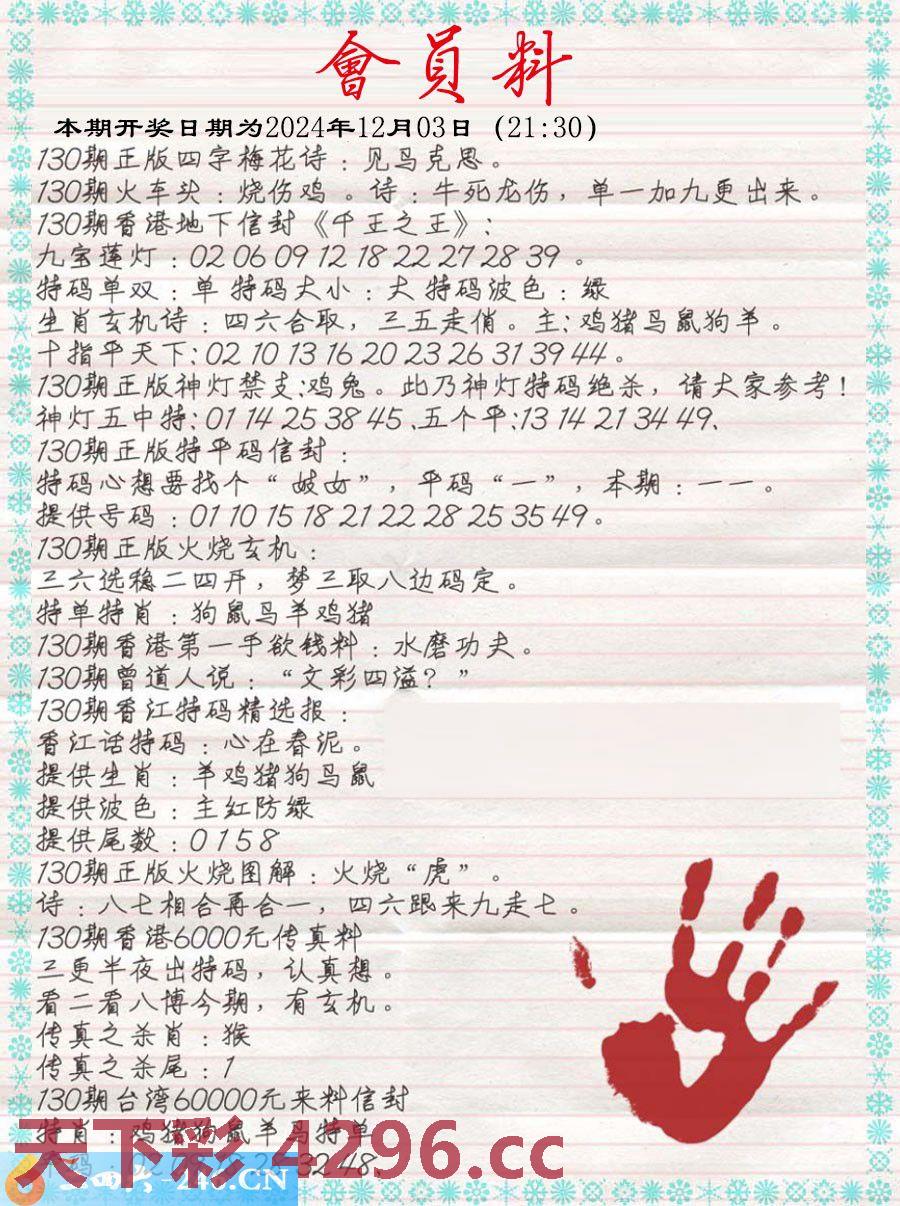 會員料
本期开奖日期为2024年12月03日（21:30）
130期正版四字梅花诗：见鸟克思。
130期火车头：烧伤鸡。诗：牛死龙伤，单一加九更出来。
130期香港地下信封《千王之王》：
九宝莲灯：02 06 09 12 18 22 27 28 39 。
特码单双：单 特码大小：大 特码波色：绿
生肖玄机诗：四六合取，三五走俏。主：鸡猪马鼠狗羊。
十指平天下：02 10 13 16 20 23 26 31 39 44 。
130期正版神灯禁支：鸡兔。此乃神灯特码绝杀，请大家参考！
神灯五中特：01 14 25 38 45 、五个平：13 14 21 34 49、
130期正版特平码信封：
特码心想要找个“妓女”，平码“一”，本期：一一。
提供号码：01 10 15 18 21 22 28 25 35 49。
130期正版火烧玄机：
三六选稳二四开，梦三取八边码定。
特单特肖：狗鼠马羊鸡猪
130期香港第一手欲钱料：水磨功夫。
130期曾道人说：“文彩四溢？”
130期香江特码精选报：
香江话特码：心在春泥。
提供生肖：羊鸡猪狗马鼠
提供波色：主红防绿
提供尾数：0 1 5 8
130期正版火烧图解：火烧“虎”。
诗：八七相合再合一，四六跟来九走七。
130期香港6000元传真料
三更半夜出特码，认真想。
看二看八博今期，有玄机。
传真之杀肖：猴
传真之杀尾：1
130期台湾60000元来料信封
特肖：鸡猪狗鼠羊马特单
32 48、
天下彩 4296.cc
246.CN